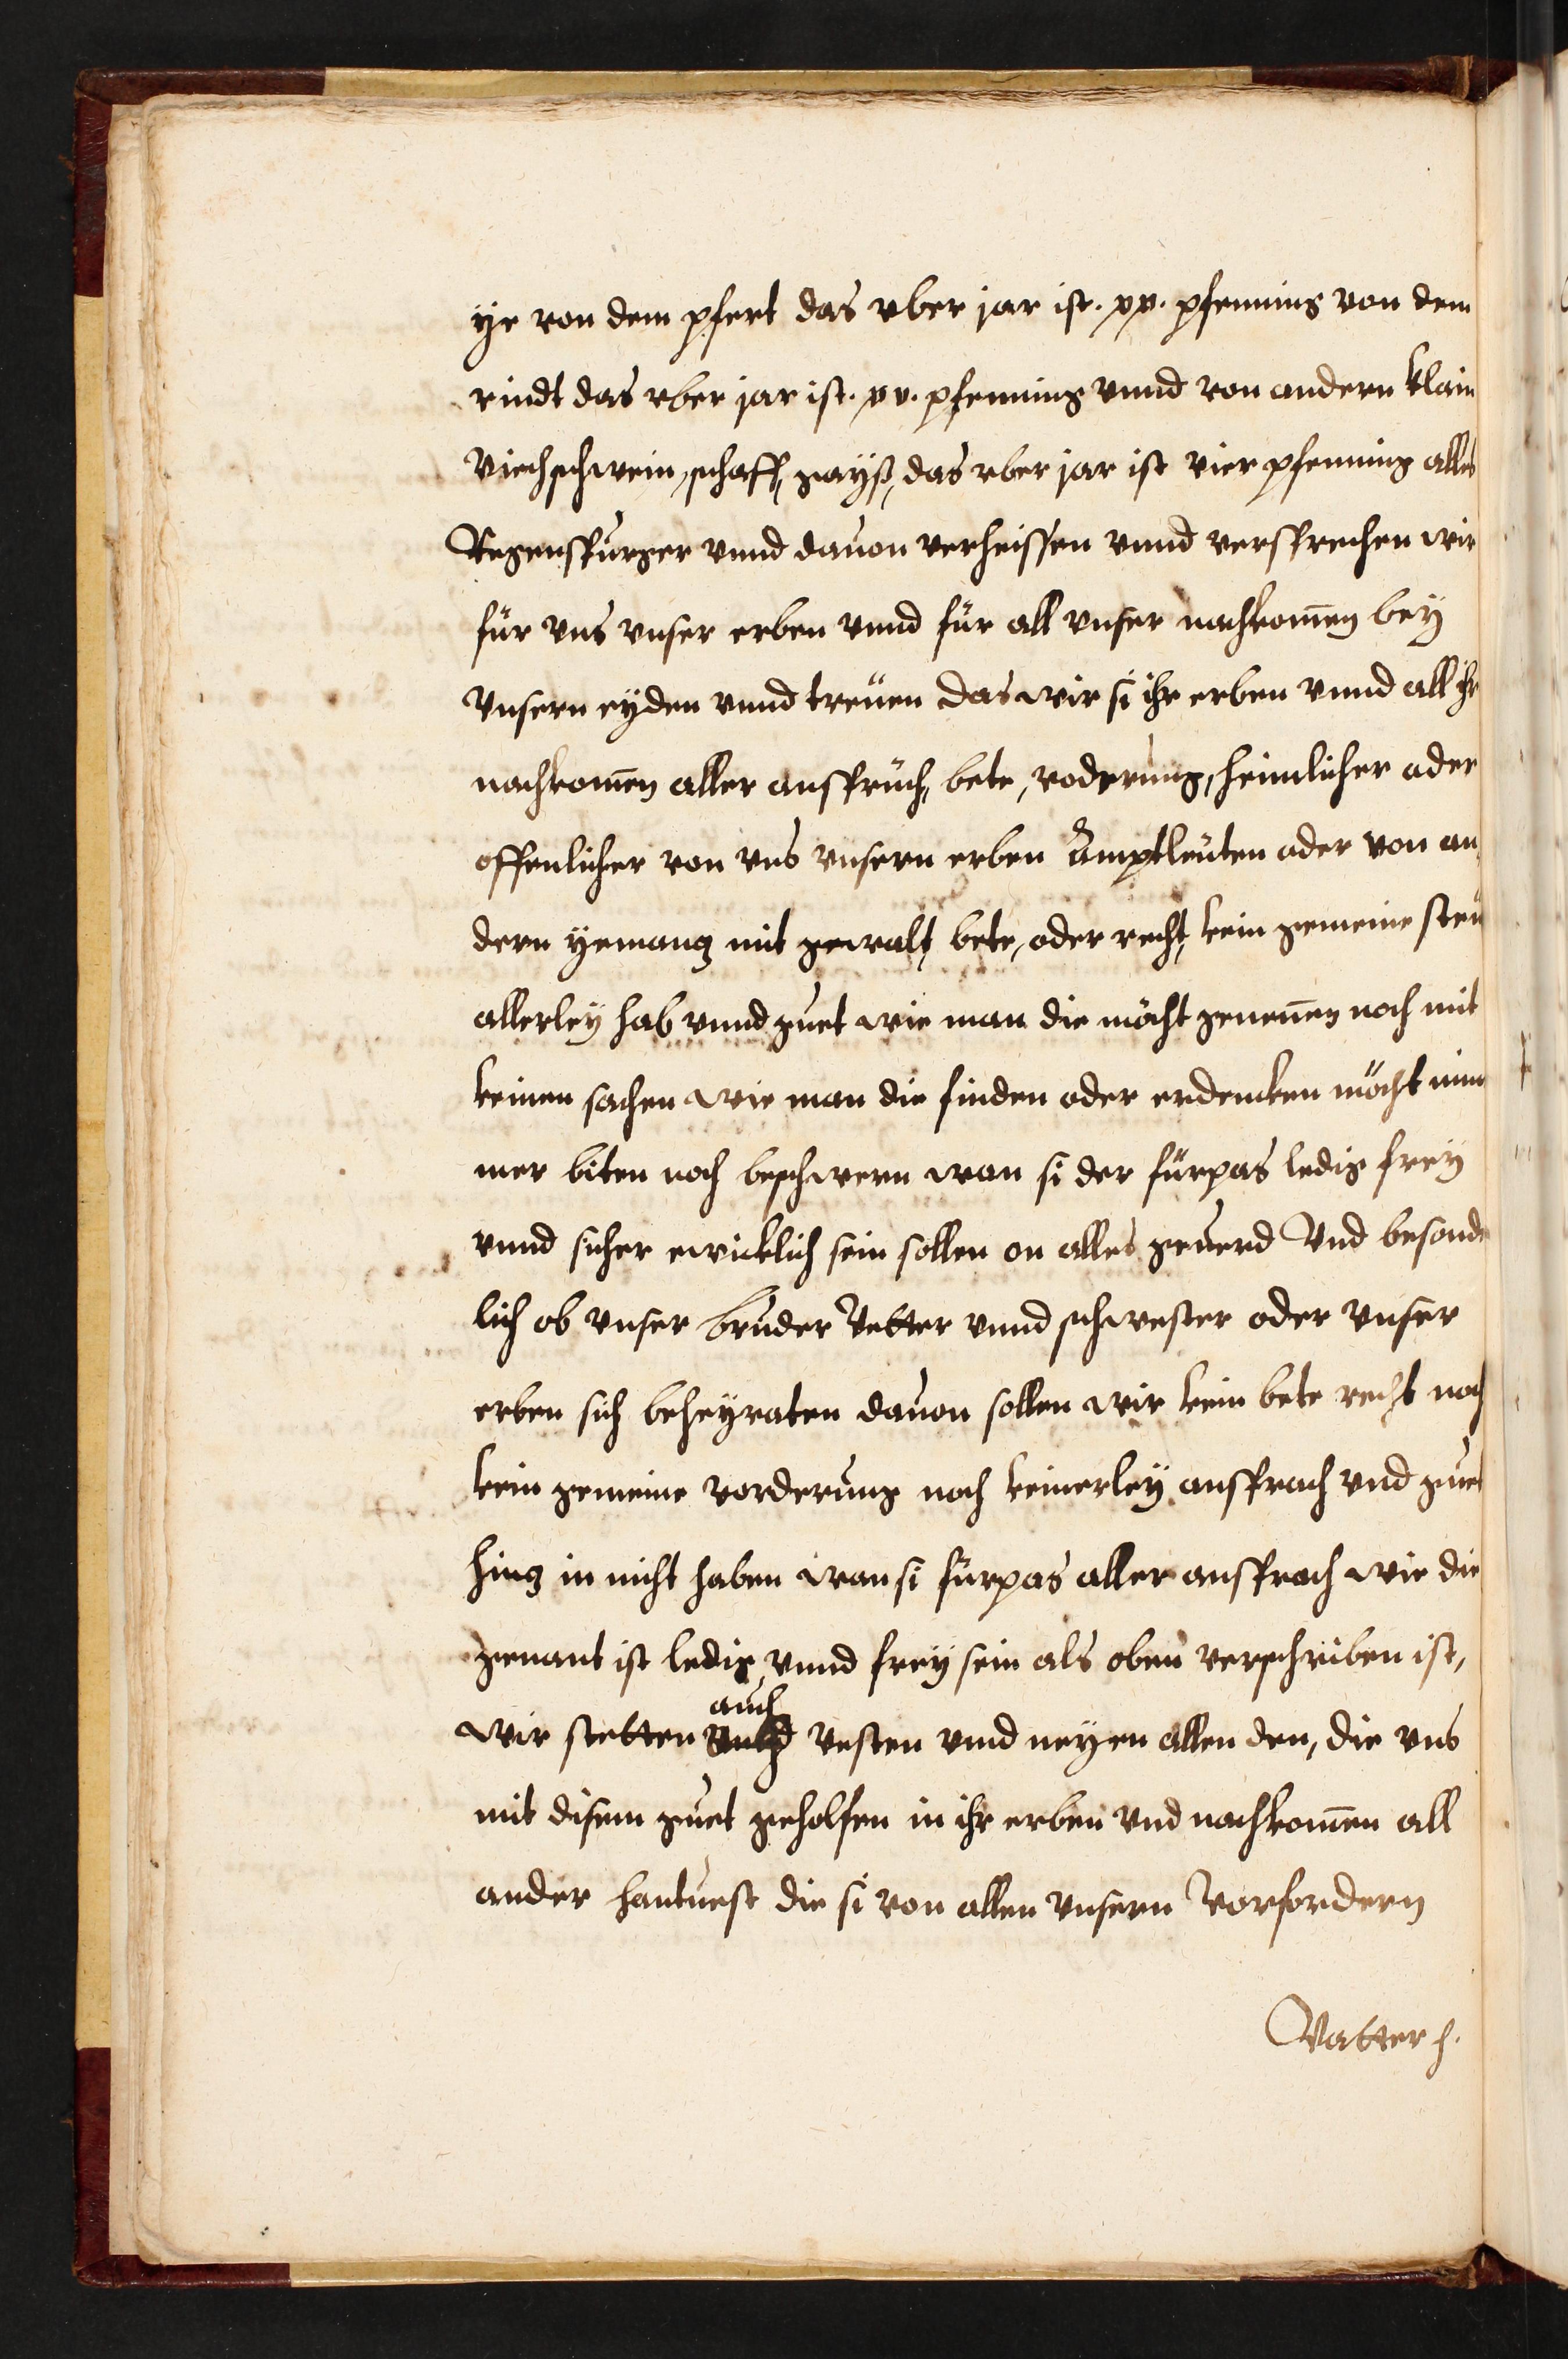 ye von dem pfert das vber jar ist. xx. pfenning von dem
rindt das vber jar ist. xv. pfenning vnnd von andern klain
Viechschwein, schaff, gayß, das vber jar ist vier pfenning alles
Regenspurger vnnd dauon verheissen vnnd versprechen wir
für vns vnser erben vnnd für all vnser nachkom̅en bey
Vnsern eyden vnnd treuen das wir si ihr erben vnnd all ihr
nachkom̅en aller anspruch, bete, voderung, heimlicher oder
offenlicher von vns vnsern erben Amptleuten oder von an
dern yemang mit gewalt, bete, oder recht, kein gemeine steu
allerley hab vnnd guet wie man die möcht genen̅en noch mit
keinen sachen wie man die finden oder erdencken möcht nim
mer biten noch beschwern wan si der fürpas ledig frey
vnnd sicher ewicklich sein sollen on alles geuerd Vnd besonde
lich ob vnser bruder Vetter vnnd schwester oder vnser
erben sich beheyraten dauon sollen wir kein bete recht noch
kein gemeine vorderung noch keinerley ansprach vnd gue
hing in nicht haben wan si fürpas aller ansprach wie die
genant ist ledig vnnd frey sein als oben verschriben ist,
auch
wir stetten vesten vnnd neyen allen den, die vns
mit disem guet geholfen in ihr erben vnd nachkom̅en all
ander hantuest die si von allen vnsern Vorfordern
Vatter h.